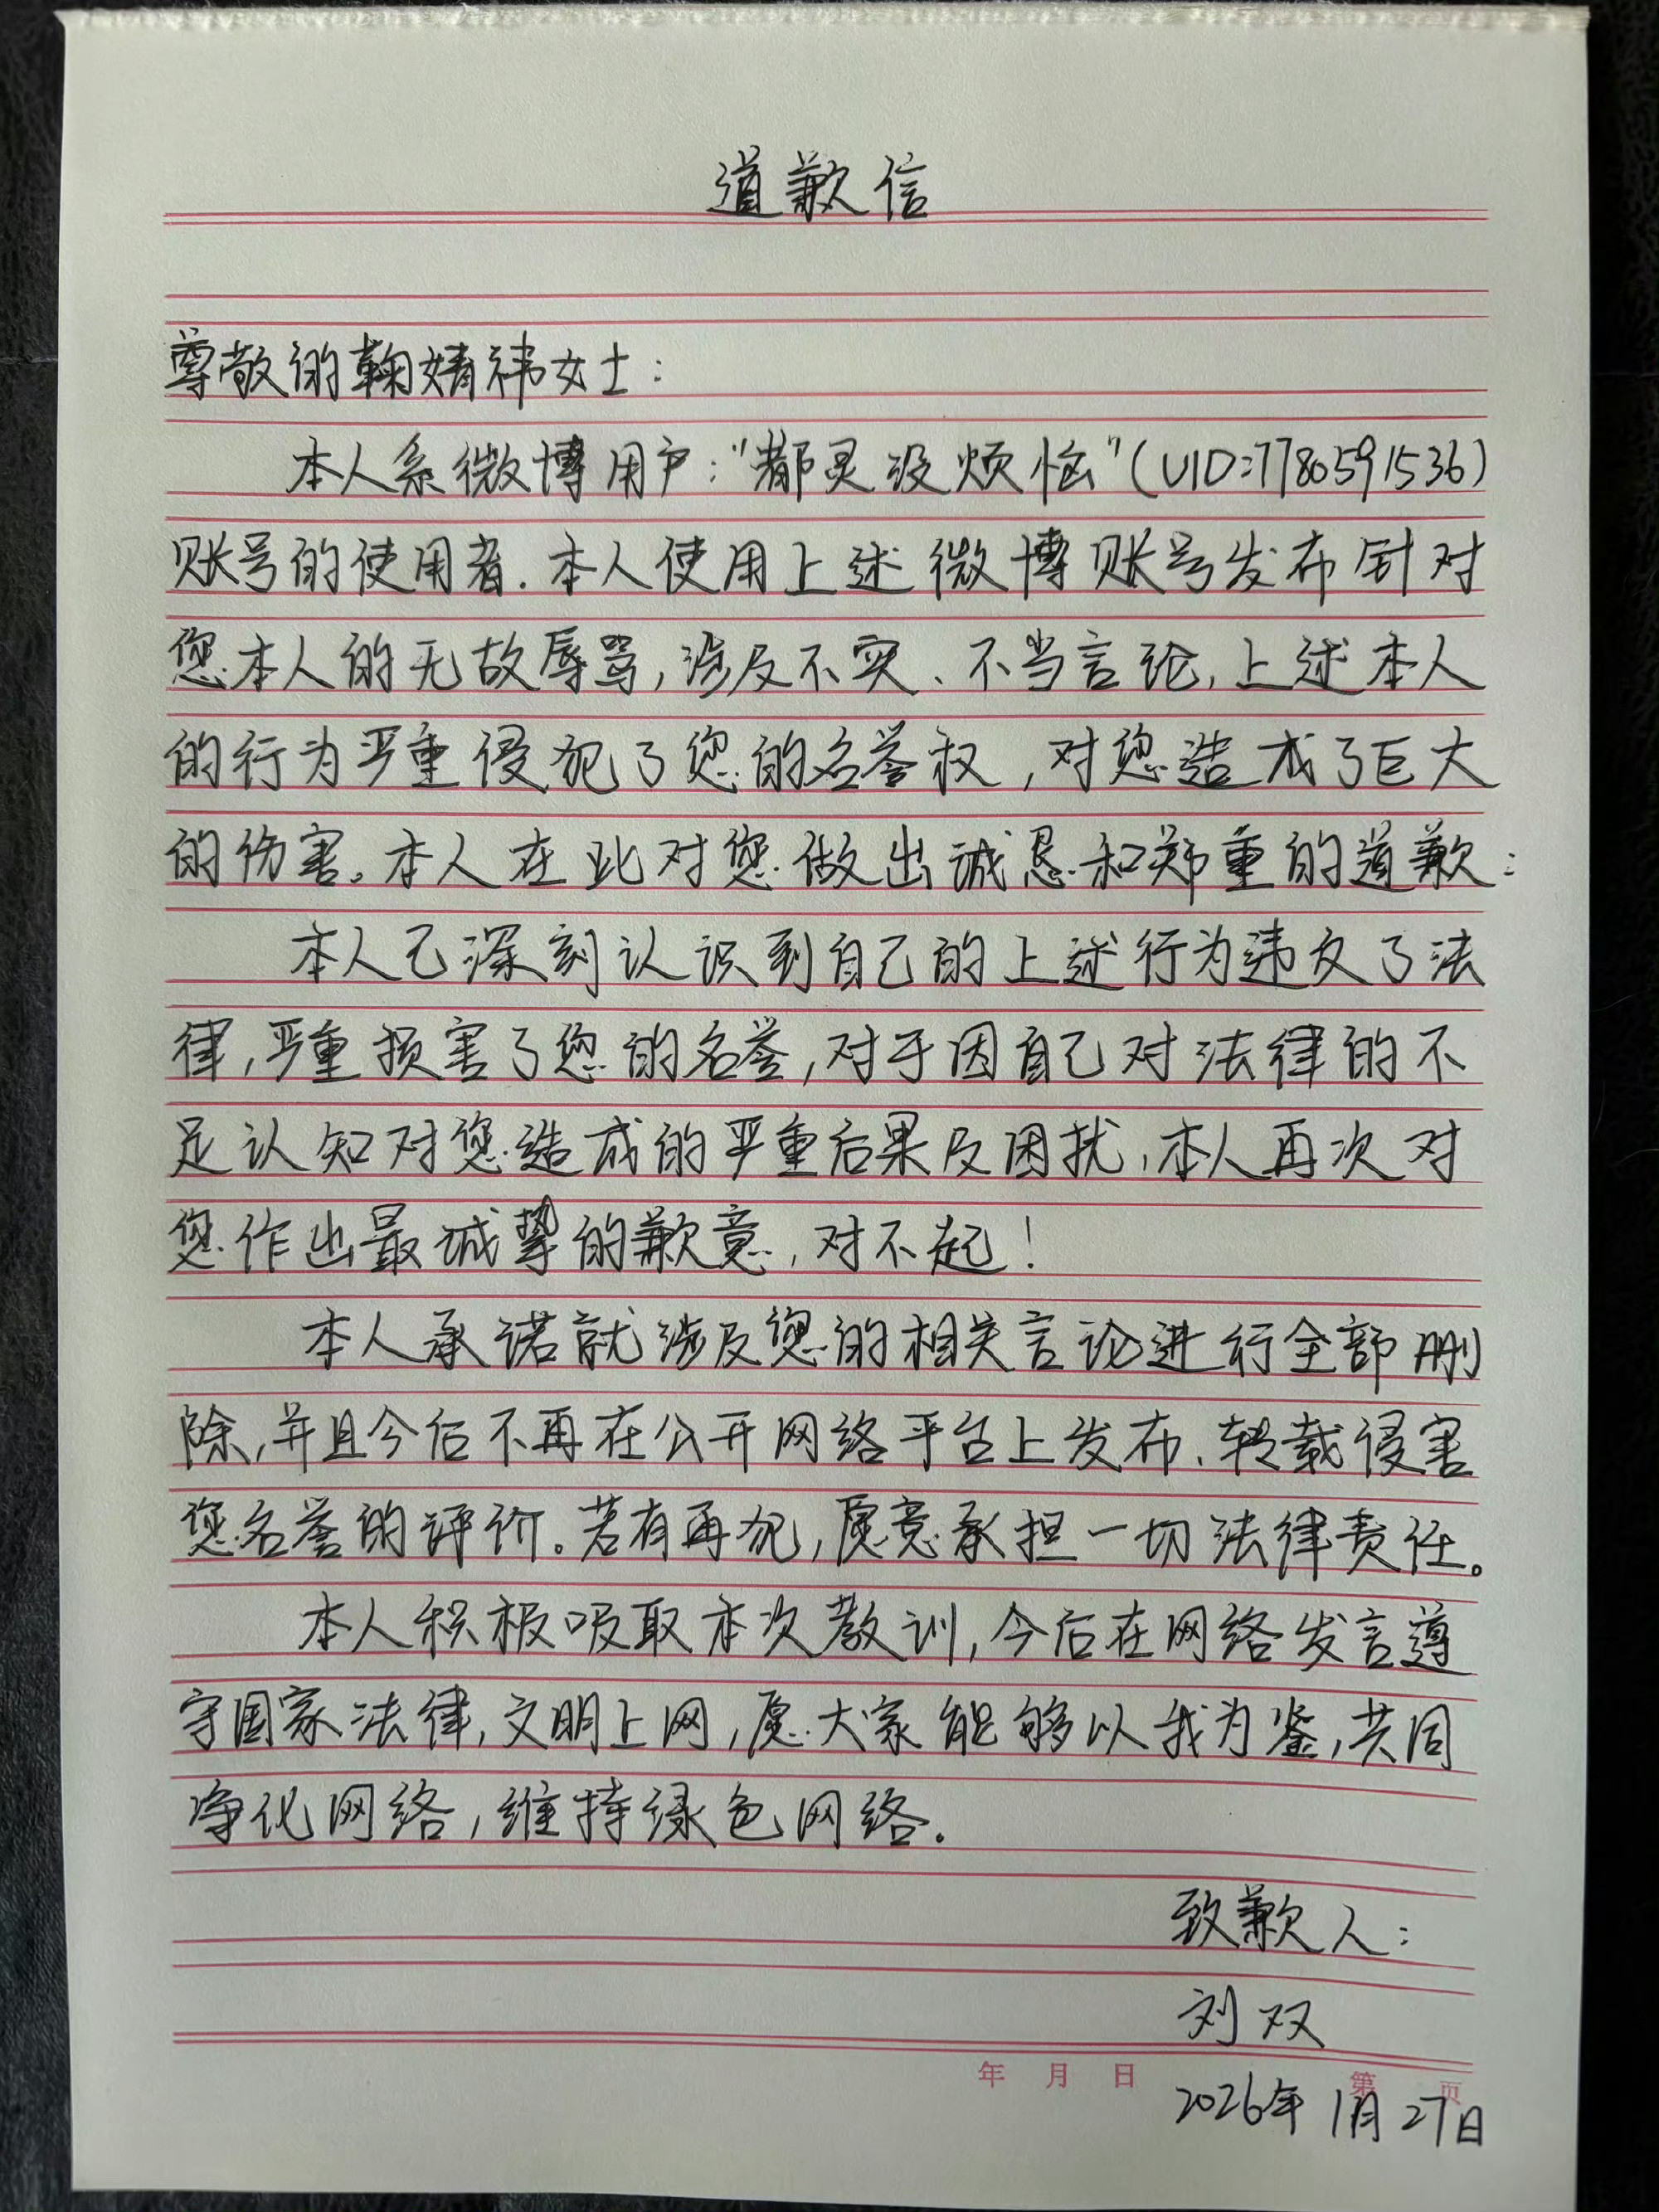 道歉信
尊敬的鞠婧祎女士：
本人系微博用户："都灵没烦恼"（UID:7780591536）
账号的使用者.本人使用上述微博账号发布针对
您本人的无故辱骂,涉及不实、不当言论,上述本人
的行为严重侵犯了您的名誉权,对您造成了巨大
的伤害。本人在此对您做出诚恳和郑重的道歉：
本人已深刻认识到自己的上述行为违反了法
律,严重损害了您的名誉,对于因自己对法律的不
足认知对您造成的严重后果及困扰,本人再次对
您作出最诚挚的歉意,对不起！
本人承诺就涉及您的相关言论进行全部删
除,并且今后不再在公开网络平台上发布、转载侵害
您名誉的评价。若有再犯,愿意承担一切法律责任。
本人积极吸取本次教训,今后在网络发言遵
守国家法律,文明上网,愿大家能够以我为鉴,共同
净化网络,维持绿色网络.
致歉人：
刘双
年 月 日 第 页
2026年1月27日